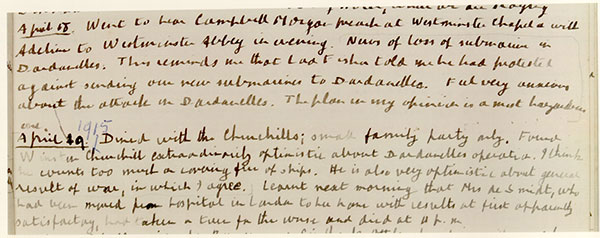 April 18. Went to hear Campbell Morgan preach at Westminster Chapel & with
Adeline to Westminster Abbey in evening. News of loss of submarine in
Dardanelles. This reminds me that Lord Fisher told me he had protested
against sending our new submarines to Dardanelles. Feel very anxious
about the attack in Dardanelles. The plan in my opinion is a most hazardous
one.
1915
April 19. Dined with the Churchills; small family party only. Found
Winston Churchill extraordinarily optimistic about Dardanelles operation. I think
he counts too much on covering fire of ships. He is also very optimistic about general
result of war, in which I agree. Learnt next morning that Mrs de Smidt, who
had been moved from hospital in London to her home with results at first apparently
satisfactory, had taken a turn for the worse and died at 11 p.m